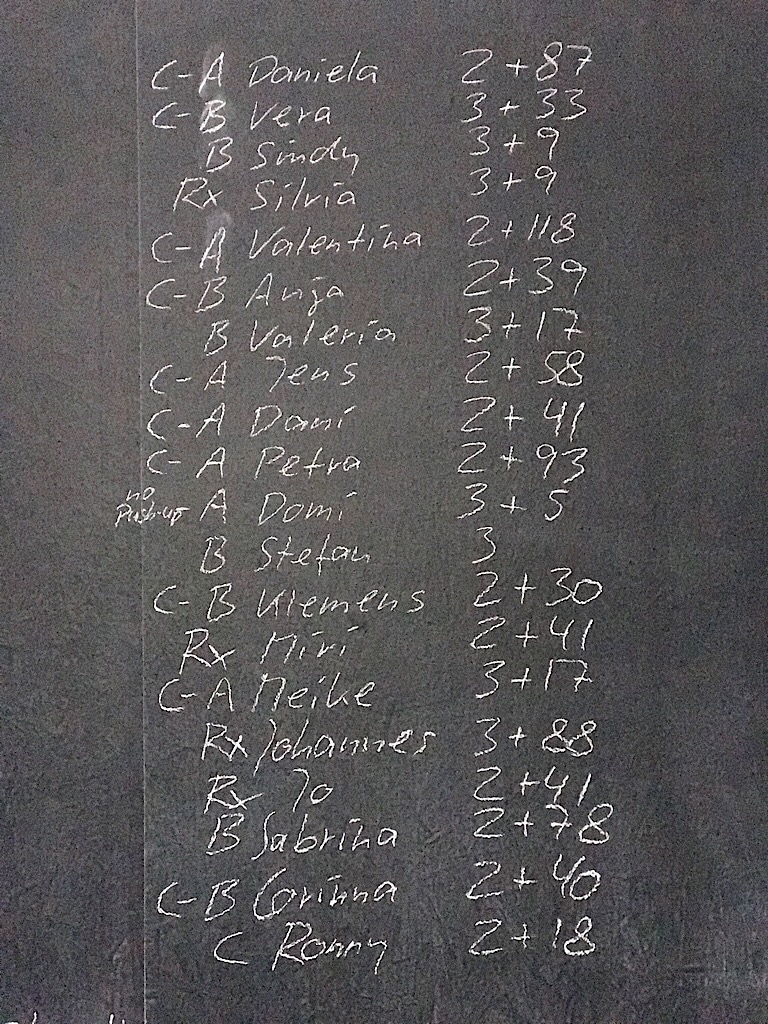 C-A Daniela 2+87
C-B Vera 3+33
B Sindy 3+9
Rx Silvia 3+9
C-A Valentina 2+118
C-B Anja 2+39
B Valeria 3+17
C-A Jens 2+58
C-A Domi 2+41
C-A Petra 2+93
no
Push-up A Domi 3+5
B Stefan 3
C-B Klemens 2+30
Rx Miri 2+41
C-A Meike 3+17
Rx Johannes 3+88
Rx Jo 2+41
B Sabrina 2+78
C-B Corinna 2+40
C Ronny 2+18